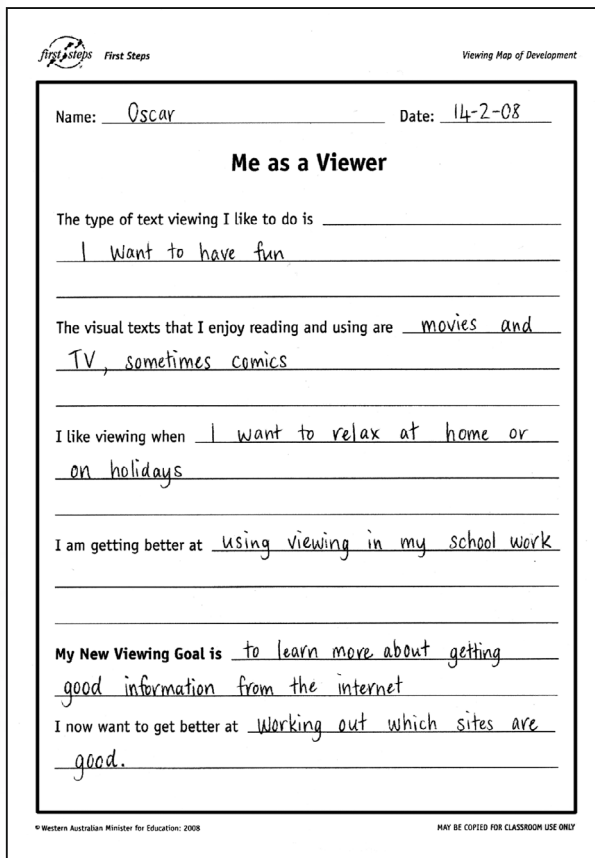 first steps First Steps Viewing Map of Development
Name: Oscar Date: 14-2-08
Me as a Viewer
The type of text viewing I like to do is
I want to have fun
The visual texts that I enjoy reading and using are movies and
TV, sometimes comics
I like viewing when I want to relax at home or
on holidays
I am getting better at using viewing in my school work
My New Viewing Goal is to learn more about getting
good information from the internet
I now want to get better at working out which sites are
good.
© Western Australian Minister for Education: 2008 MAY BE COPIED FOR CLASSROOM USE ONLY